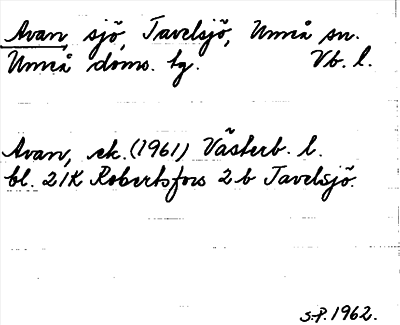 Avan, sjö, Tavelsjö, Umeå sn.
Umeå doms. tg. Vb. l.
Avan, ek. (1961) Västerb. l.
bl. 21K Robertsfors 2 b Tavelsjö.
S.P. 1962.